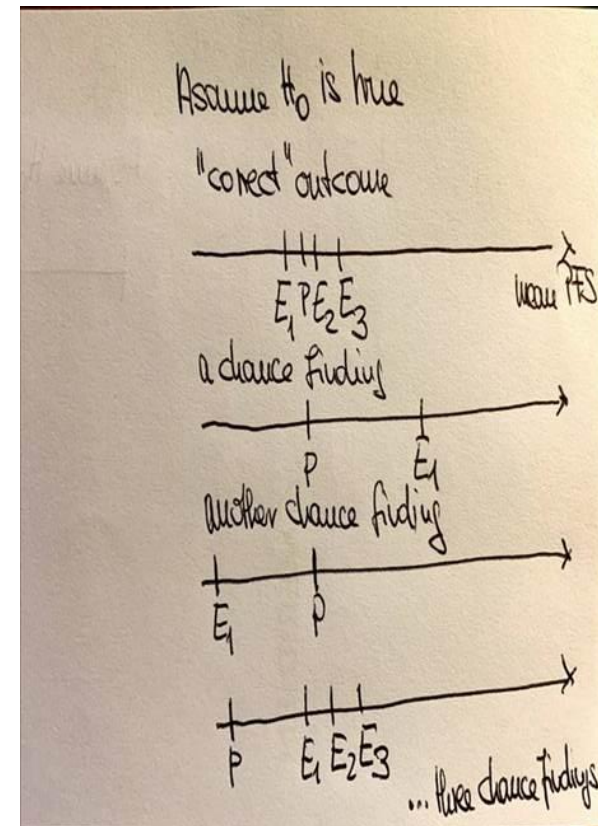 Assume H₀ is true
"corect" outcome
mean PFS
E₁ P E₂ E₃
a chance finding
P E₁
another chance finding
E₁ P
P E₁ E₂ E₃
... three chance findings